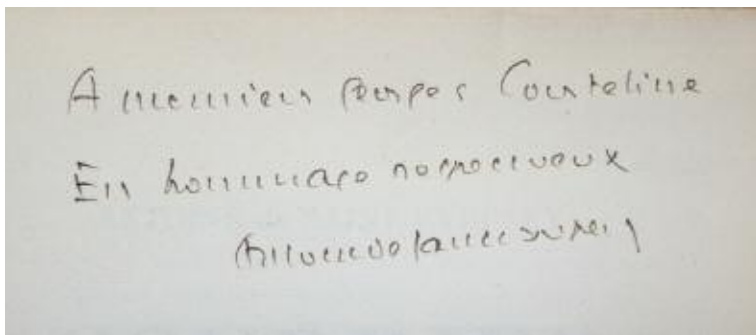 A monsieur Georges Courteline
En hommage respectueux